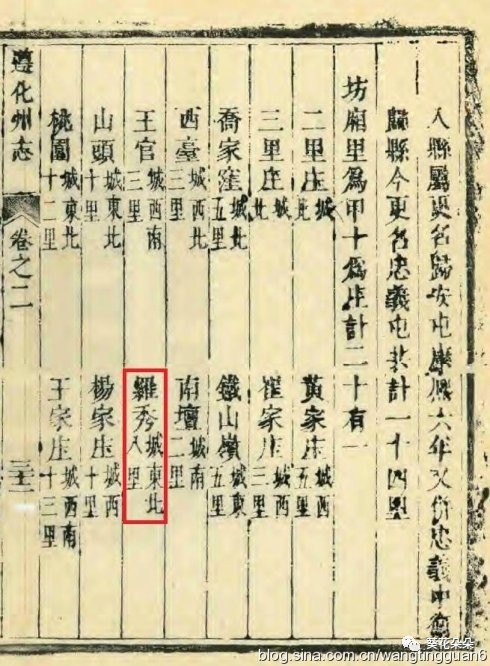 入縣屬更名歸安屯康熙六年又併忠義中衛
歸縣今更名忠義屯共計一十四里
坊廂里爲甲十爲庄計二十有一
二里庄城北 黃家庄城西五里
三里庄城北 崔家庄
喬家窪城北五里 鐵山嶺城東五里
西臺城西三里 南壇城南二里
王官城西南三里 羅秀城東北八里
山頭城東北十里 楊家庄城西十里
桃園城東北十二里 王家庄城西南十三里
遵化州志 卷之二
葵花朵朵
blog.sina.com.cn/wangtingguan6